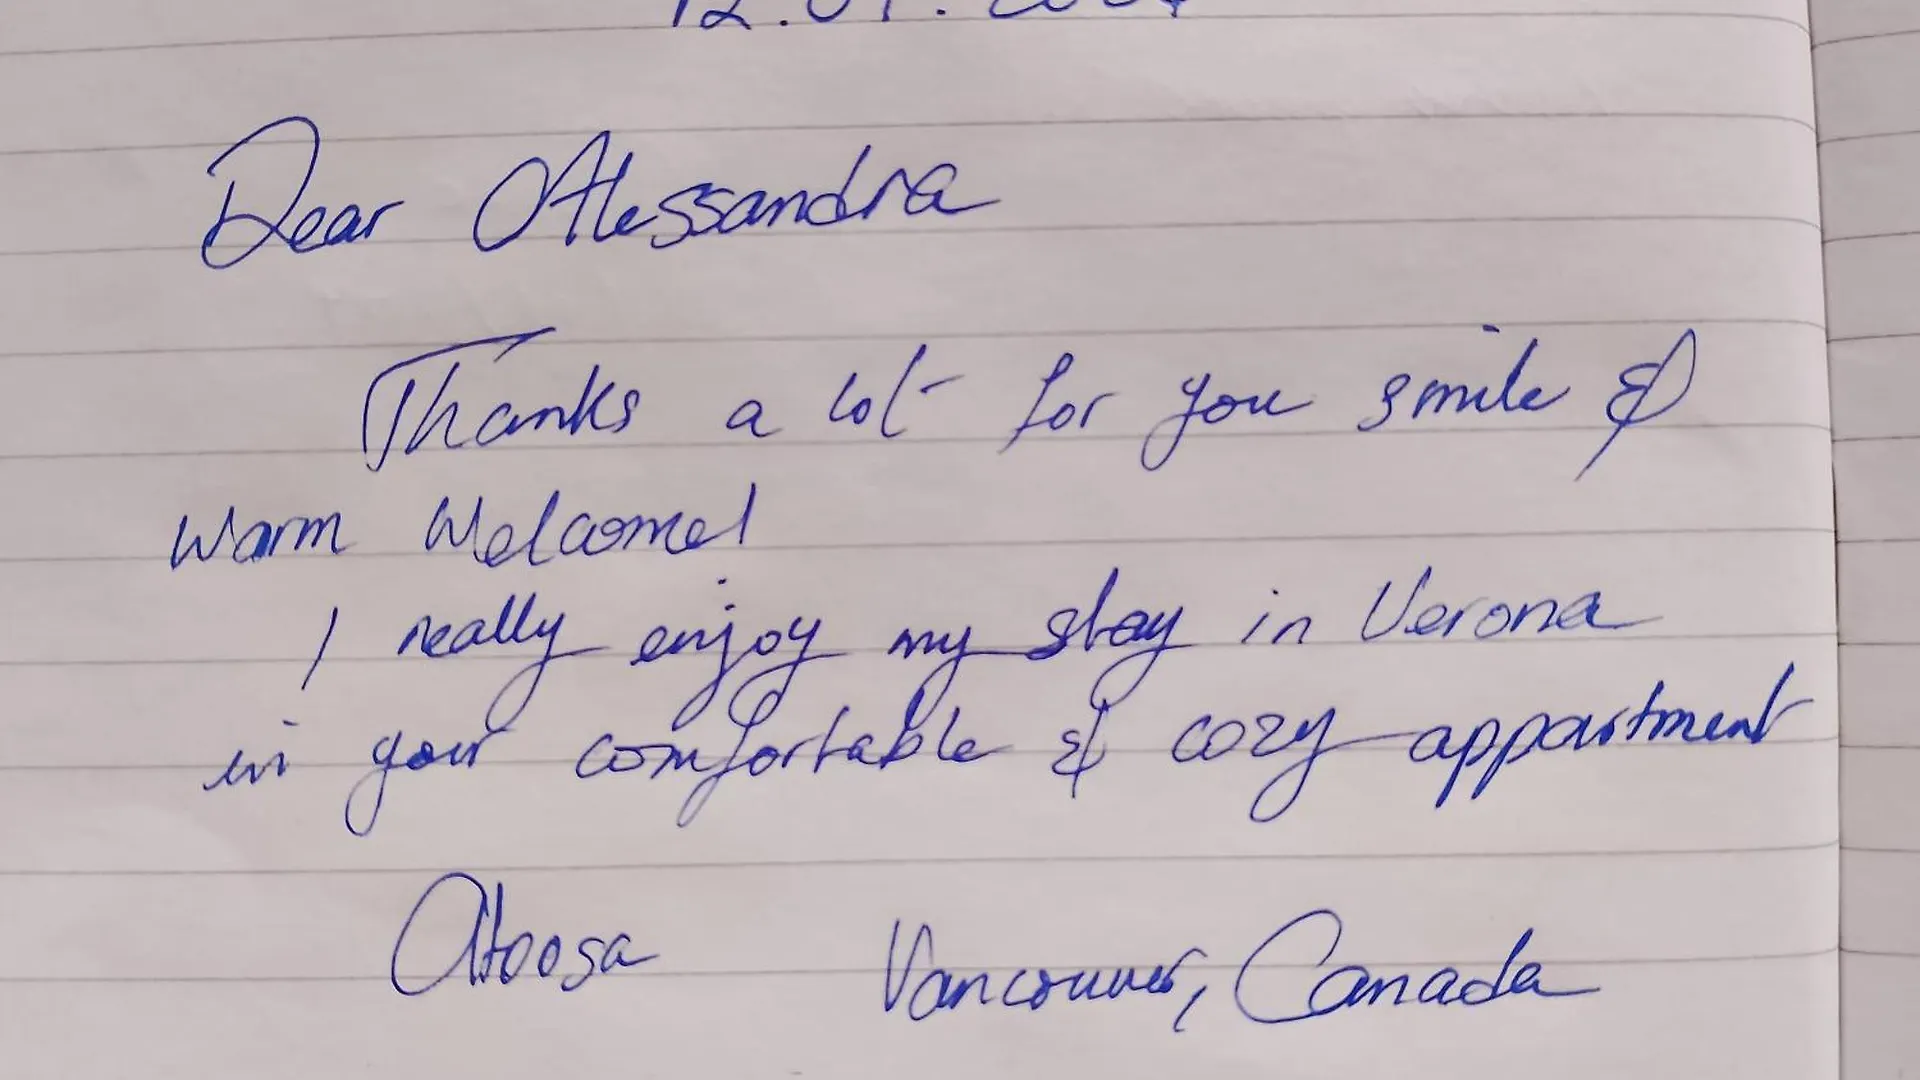 Dear Alessandra
Thanks a lot for you smile &
warm Welcome!
I really enjoy my stay in Verona
in your comfortable & cozy appartment
Atoosa Vancouver, Canada